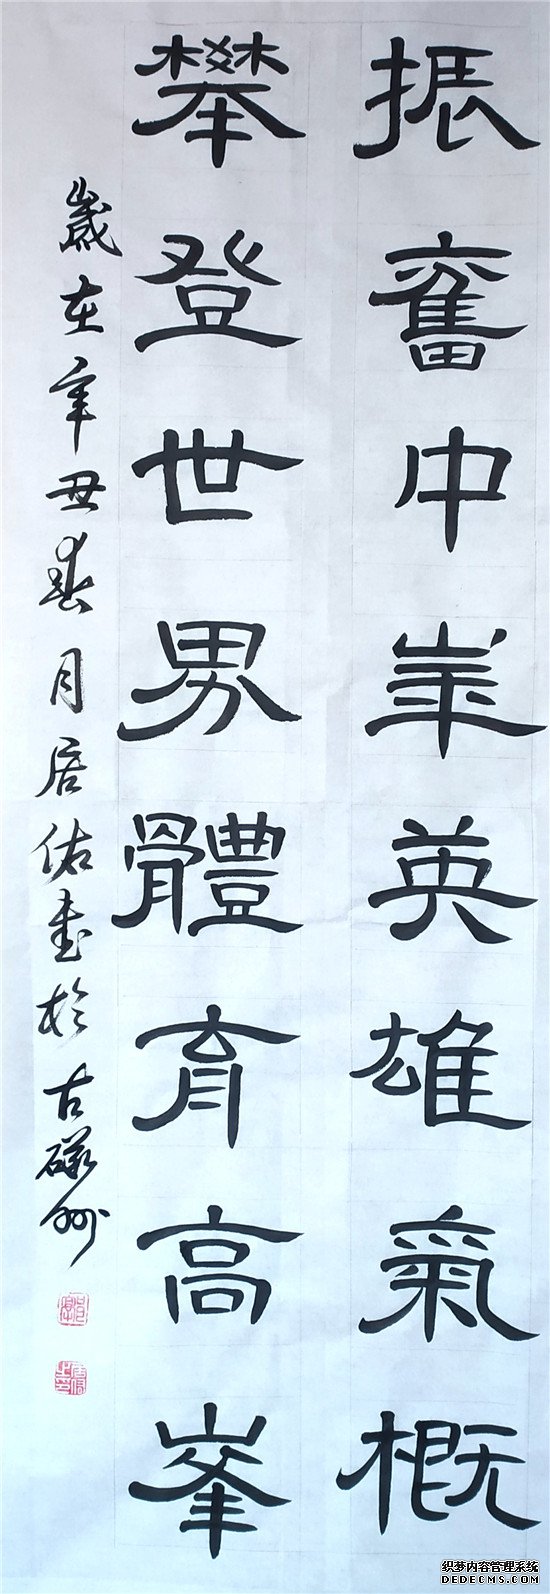 振奮中華英雄氣概
攀登世界體育高峯
歲在辛丑春月佑書於古磁州
织梦内容管理系统
DEDECMS.COM